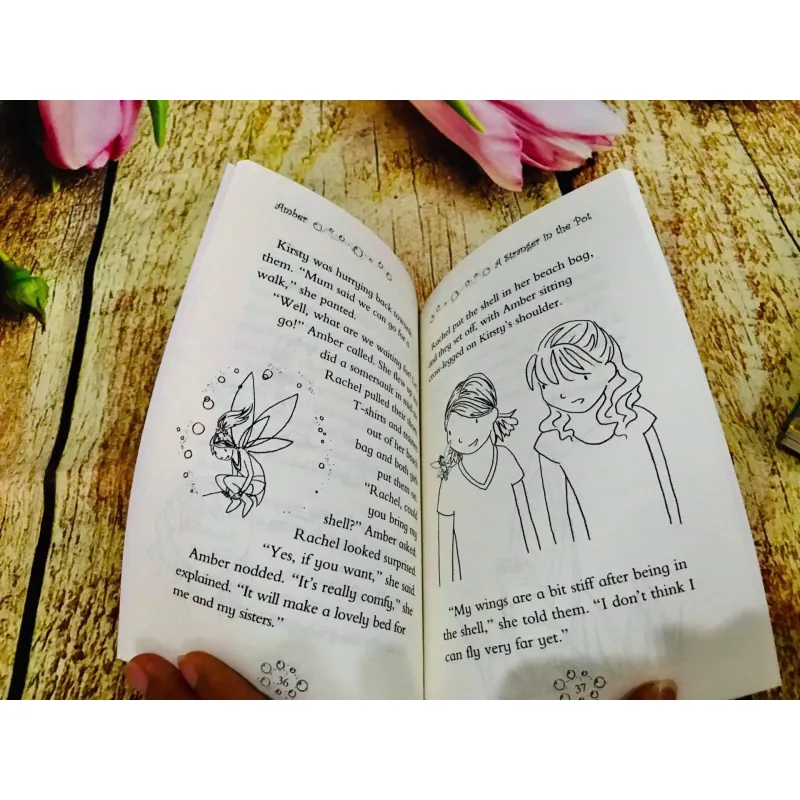 Amber
Kirsty was hurrying back towards
them. "Mum said we can go for a
walk," she panted.
"Well, what are we waiting for? Let's
go!" Amber called. She flew up and
did a somersault in mid-air.
Rachel pulled their shorts,
T-shirts and
out of her beach
bag and both girls
put them on.
"Rachel, could
you bring my
shell?" Amber asked.
Rachel looked surprised.
"Yes, if you want," she said.
Amber nodded. "It's really comfy," she
explained. "It will make a lovely bed for
me and my sisters."
36
A Stranger in the Pot
Rachel put the shell in her beach bag,
and they set off, with Amber sitting
cross-legged on Kirsty's shoulder.
"My wings are a bit stiff after being in
the shell," she told them. "I don't think I
can fly very far yet."
37